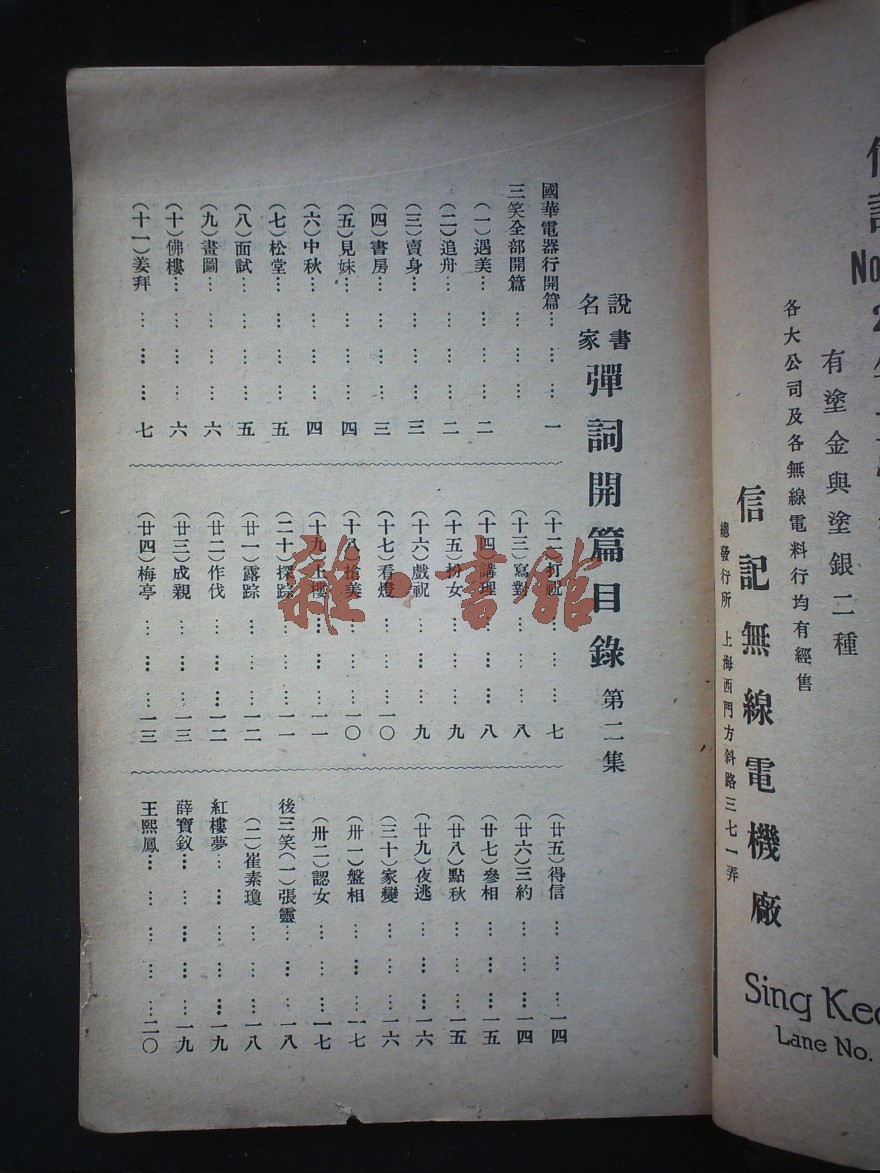 說書名家彈詞開篇目錄 第二集
國華電器行開篇… … … 一
三笑全部開篇 … … …
(一)遇美… … … … 二
(二)追舟… … … … 二
(三)賣身… … … … 三
(四)書房… … … … 三
(五)見妹… … … … 四
(六)中秋… … … … 四
(七)松堂… … … … 五
(八)面試… … … … 五
(九)畫圖… … … … 六
(十)佛樓… … … … 六
(十一)姜拜 … … … 七
(十二)打祝 … … … 七
(十三)寫對 … … … 八
(十四)講理 … … … 八
(十五)扮女 … … … 九
(十六)戲祝 … … … 九
(十七)看燈 … … …一〇
(十八)搶美 … … …一〇
(十九)上樓 … … …一一
(二十)探踪 … … …一一
(廿一)露踪 … … …一二
(廿二)作伐 … … …一二
(廿三)成親 … … …一三
(廿四)梅亭 … … …一三
(廿五)得信 … … …一四
(廿六)三約 … … …一四
(廿七)參相 … … …一五
(廿八)點秋 … … …一五
(廿九)夜逃 … … …一六
(三十)家變 … … …一六
(卅一)盤相 … … …一七
(卅二)認女 … … …一七
後三笑(一)張靈… …一八
(二)崔素瓊 … … …一八
紅樓夢… … … … …一九
薛寶釵… … … … …一九
王熙鳳… … … … …二〇
信記
No
有塗金與塗銀二種
各大公司及各無線電料行均有經售
信記無線電機廠
總發行所 上海西門方斜路三七一弄
Sing Kee
Lane No.
雜·書館